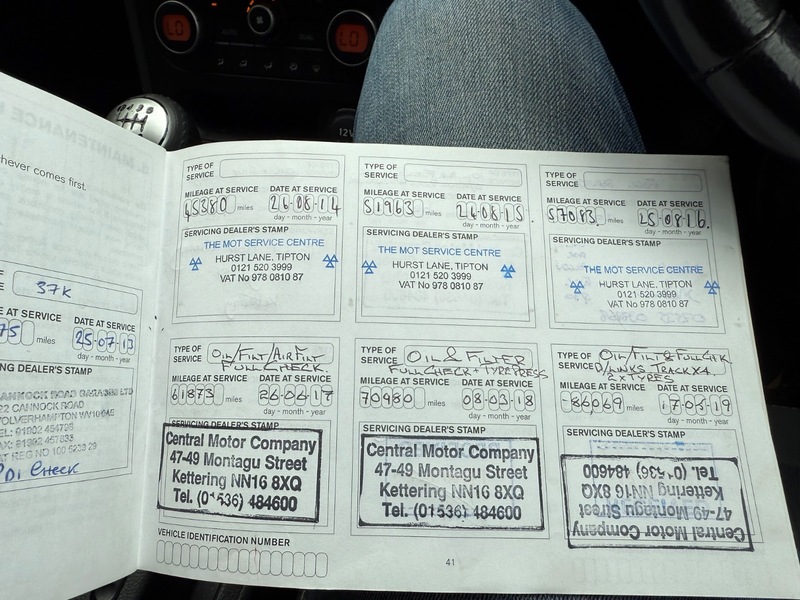 LO
LO
12V
hever comes first.
37K
75 miles
DATE AT SERVICE
25-07-13
day - month - year
DEALER'S STAMP
CANNOCK ROAD
PDI Check
TYPE OF SERVICE
MILEAGE AT SERVICE
DATE AT SERVICE
45380 miles
26-08-14
day - month - year
SERVICING DEALER'S STAMP
THE MOT SERVICE CENTRE
HURST LANE, TIPTON
0121 520 3999
VAT No 978 0810 87
TYPE OF SERVICE
MILEAGE AT SERVICE
DATE AT SERVICE
51963 miles
26-08-15
day - month - year
SERVICING DEALER'S STAMP
THE MOT SERVICE CENTRE
HURST LANE, TIPTON
0121 520 3999
VAT No 978 0810 87
TYPE OF SERVICE
MILEAGE AT SERVICE
DATE AT SERVICE
57083 miles
25-08-16
day - month - year
SERVICING DEALER'S STAMP
THE MOT SERVICE CENTRE
HURST LANE, TIPTON
0121 520 3999
VAT No 978 0810 87
TYPE OF SERVICE
Oil/Filt/Air Filt
Full Check.
MILEAGE AT SERVICE
DATE AT SERVICE
61873 miles
26-04-17
day - month - year
SERVICING DEALER'S STAMP
Central Motor Company
47-49 Montagu Street
Kettering NN16 8XQ
Tel. (01536) 484600
TYPE OF SERVICE
OIL & FILTER
FULL CHECK + TYRE PRESS
MILEAGE AT SERVICE
DATE AT SERVICE
70980 miles
08-03-18
day - month - year
SERVICING DEALER'S STAMP
Central Motor Company
47-49 Montagu Street
Kettering NN16 8XQ
Tel. (01536) 484600
TYPE OF SERVICE
Oil/Filt & Full Chk
D/LINKS TRACK X4
2 X TYRES
MILEAGE AT SERVICE
DATE AT SERVICE
86,069 miles
17-05-19
day - month - year
SERVICING DEALER'S STAMP
Central Motor Company
47-49 Montagu Street
Kettering NN16 8XQ
Tel. (01536) 484600
VEHICLE IDENTIFICATION NUMBER
41